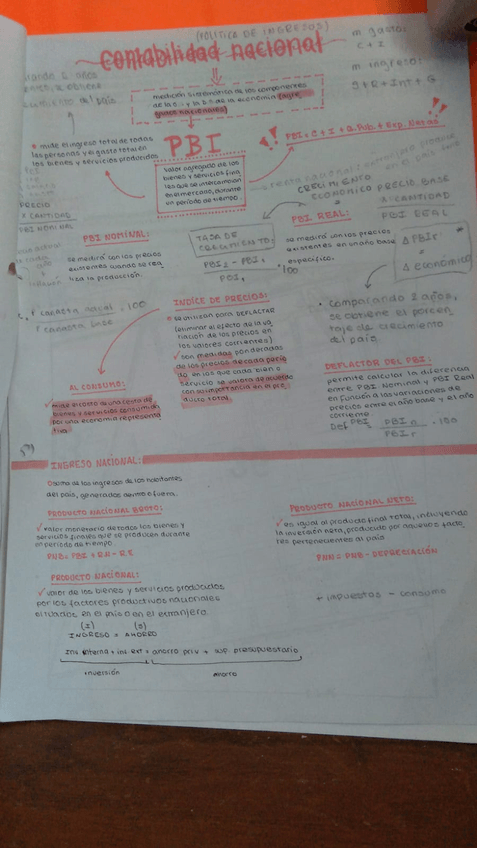 (POLITICA DE INGRESOS)
contabilidad nacional
m gasto:
C + I
m ingreso:
g + R + Int + G
medición sistemática de los componentes
de la economía
del país
• mide el ingreso total de todas
las personas y el gasto total en
los bienes y servicios producidos
PBI
valor agregado de los
bienes y servicios fina
les que se intercambian
en el mercado, durante
un periodo de tiempo.
CRECIMIENTO
ECONOMICO
PRECIO BASE
x CANTIDAD
PBI REAL
PRECIO
x CANTIDAD
PBI NOMINAL
PBI NOMINAL:
se medirá con los precios
existentes cuando se rea
liza la producción.
TASA DE
CRECIMIENTO:
PBI2 - PBI1
PBI1
· 100
PBI REAL:
se medirá con los precios
existentes en un año base
específico.
Δ PBIr
=
Δ económico
• comparando 2 años,
se obtiene el porcen
taje de crecimiento
del país
P canasta actual . 100
P canasta base
INDICE DE PRECIOS:
se utilizan para DEFLACTAR
(eliminar el efecto de la va
riacion de los precios en
los valores corrientes)
✓ son medidas ponderadas
de los precios de cada perío
do en los que cada bien o
servicio se valora de acuerdo
con su importancia en el pro
ducto total.
AL CONSUMO:
mide el costo de una cesta de
bienes y servicios consumida
por una economía representa
tiva
DEFLACTOR DEL PBI:
permite calcular la diferencia
entre PBI Nominal y PBI Real
en función a las variaciones de
precios entre el año base y el año
corriente
Def PBI = PBI n . 100
PBI r
INGRESO NACIONAL:
suma de los ingresos de los habitantes
del país, generados dentro o fuera.
PRODUCTO NACIONAL BRUTO:
✓ valor monetario de todos los bienes y
servicios finales que se producen durante
un periodo de tiempo
PNB = PBI + RN - RE
PRODUCTO NACIONAL NETO:
✓ es igual al producto final total, incluyendo
la inversión neta, producido por aquellos facto
res pertenecientes al país
PNN = PNB - DEPRECIACIÓN
PRODUCTO NACIONAL:
✓ valor de los bienes y servicios producidos
por los factores productivos nacionales
situados en el país o en el extranjero
(I) (S)
INGRESO = AHORRO
+ impuestos - consumo
Inv. interna + inv ext = ahorro priv + sup. presupuestario
inversión ahorro